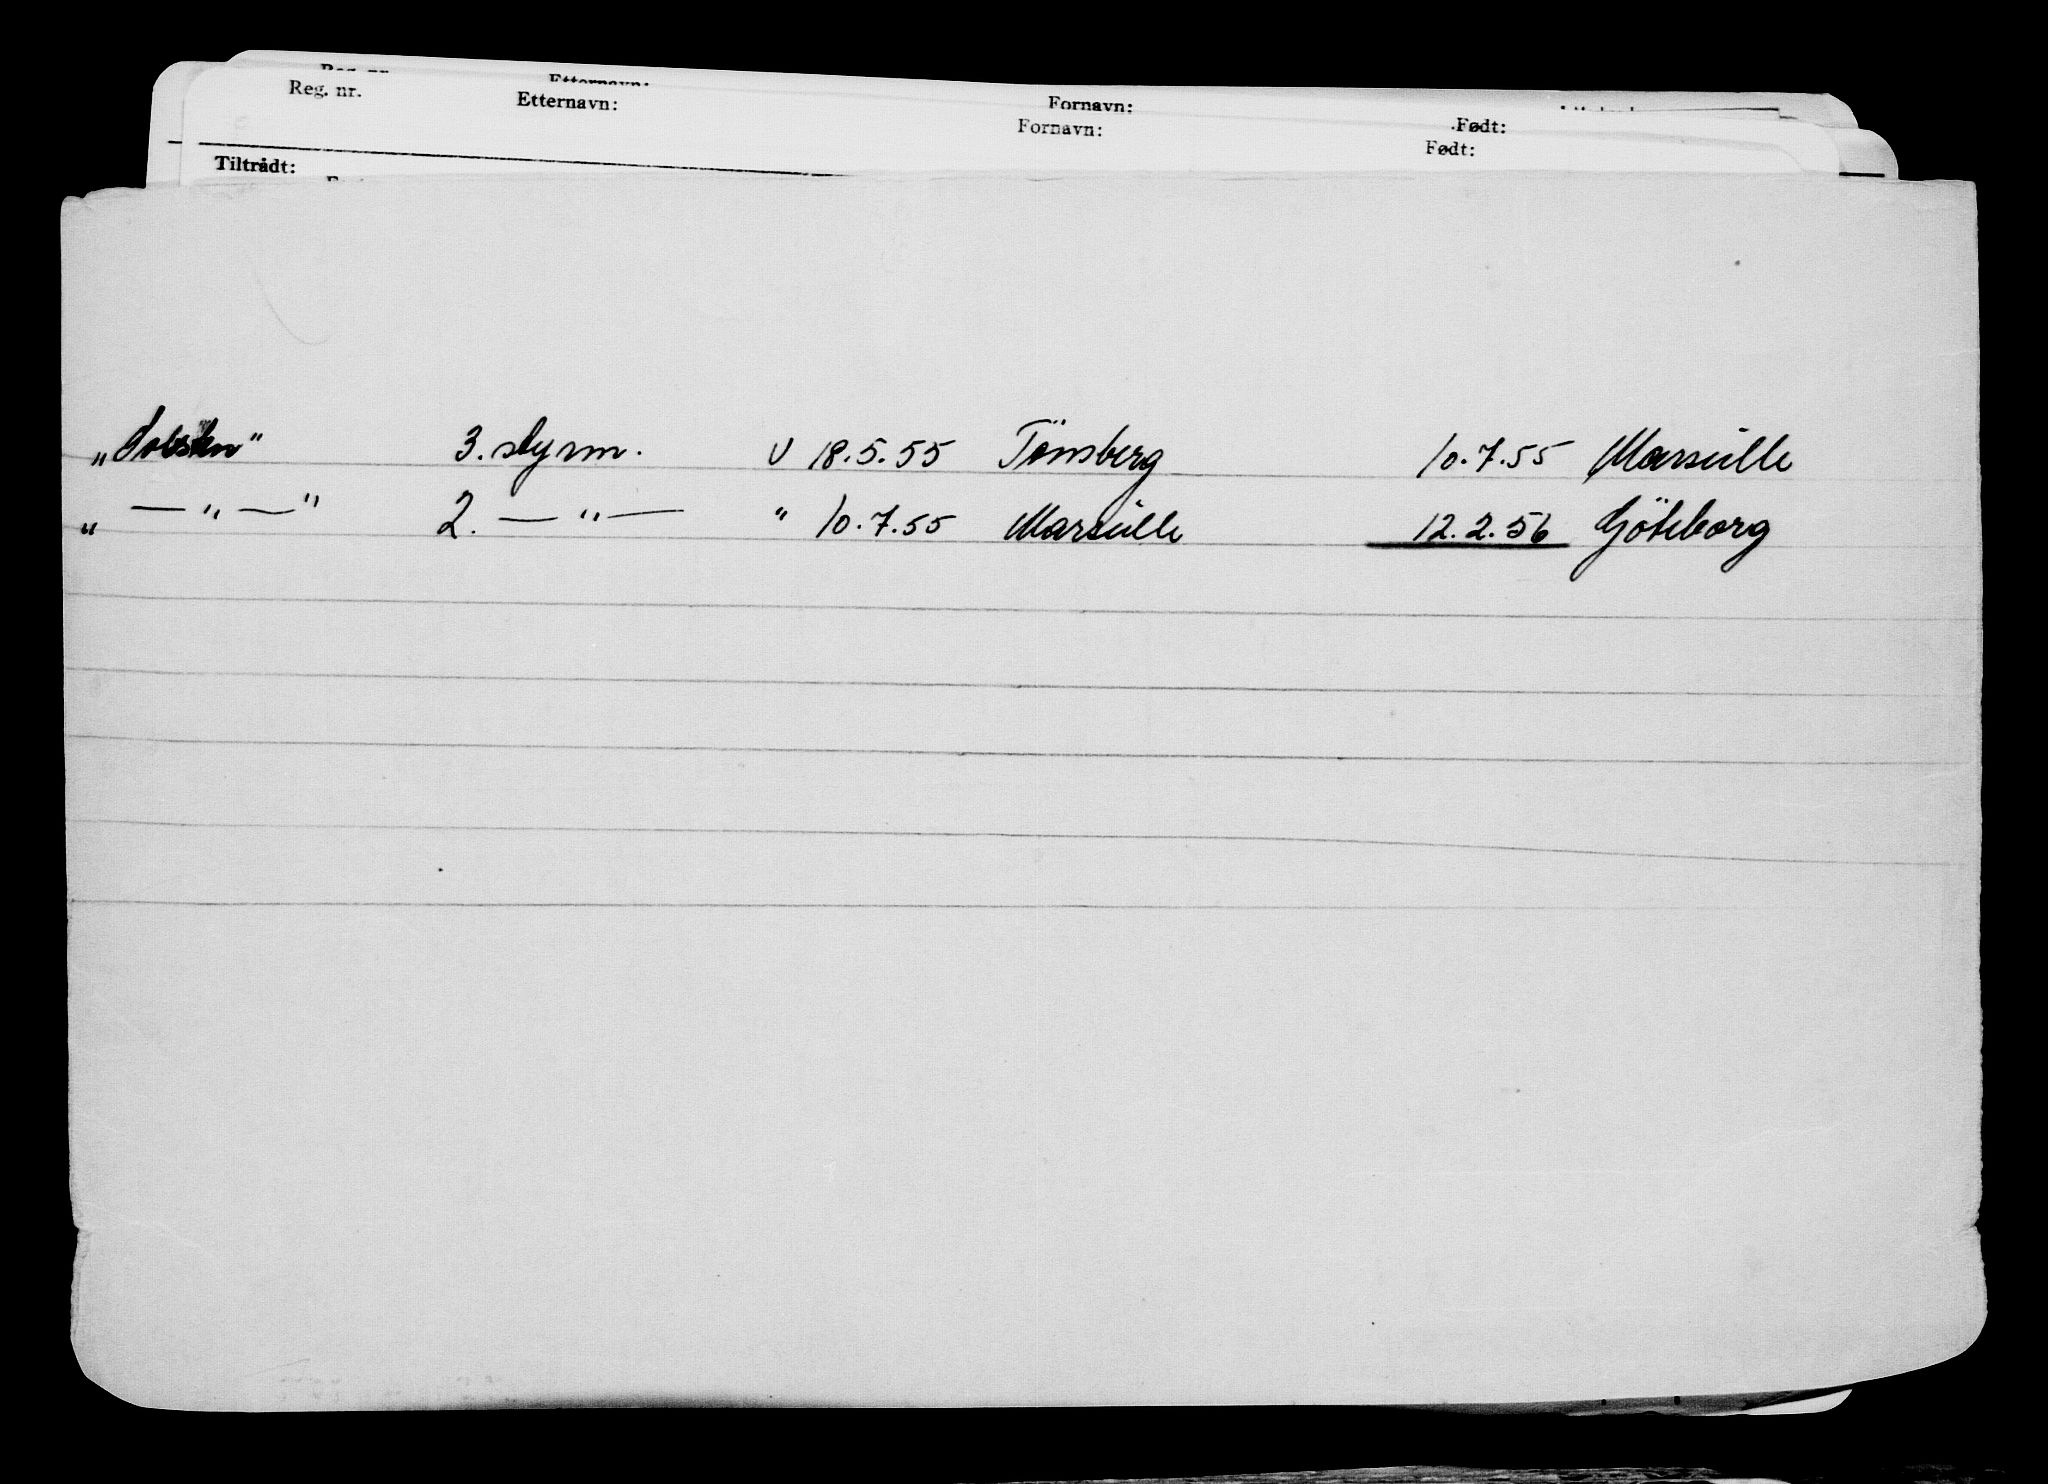 Reg. nr. Etternavn: Fornavn: Født:
Reg. nr. Etternavn: Fornavn: Født:
Tiltrådt:
3. styrm. v 18.5.55 Tönsberg 10.7.55 Marseille
„ — " — " 2. — " — " 10.7.55 Marseille 12.2.56 Göteborg